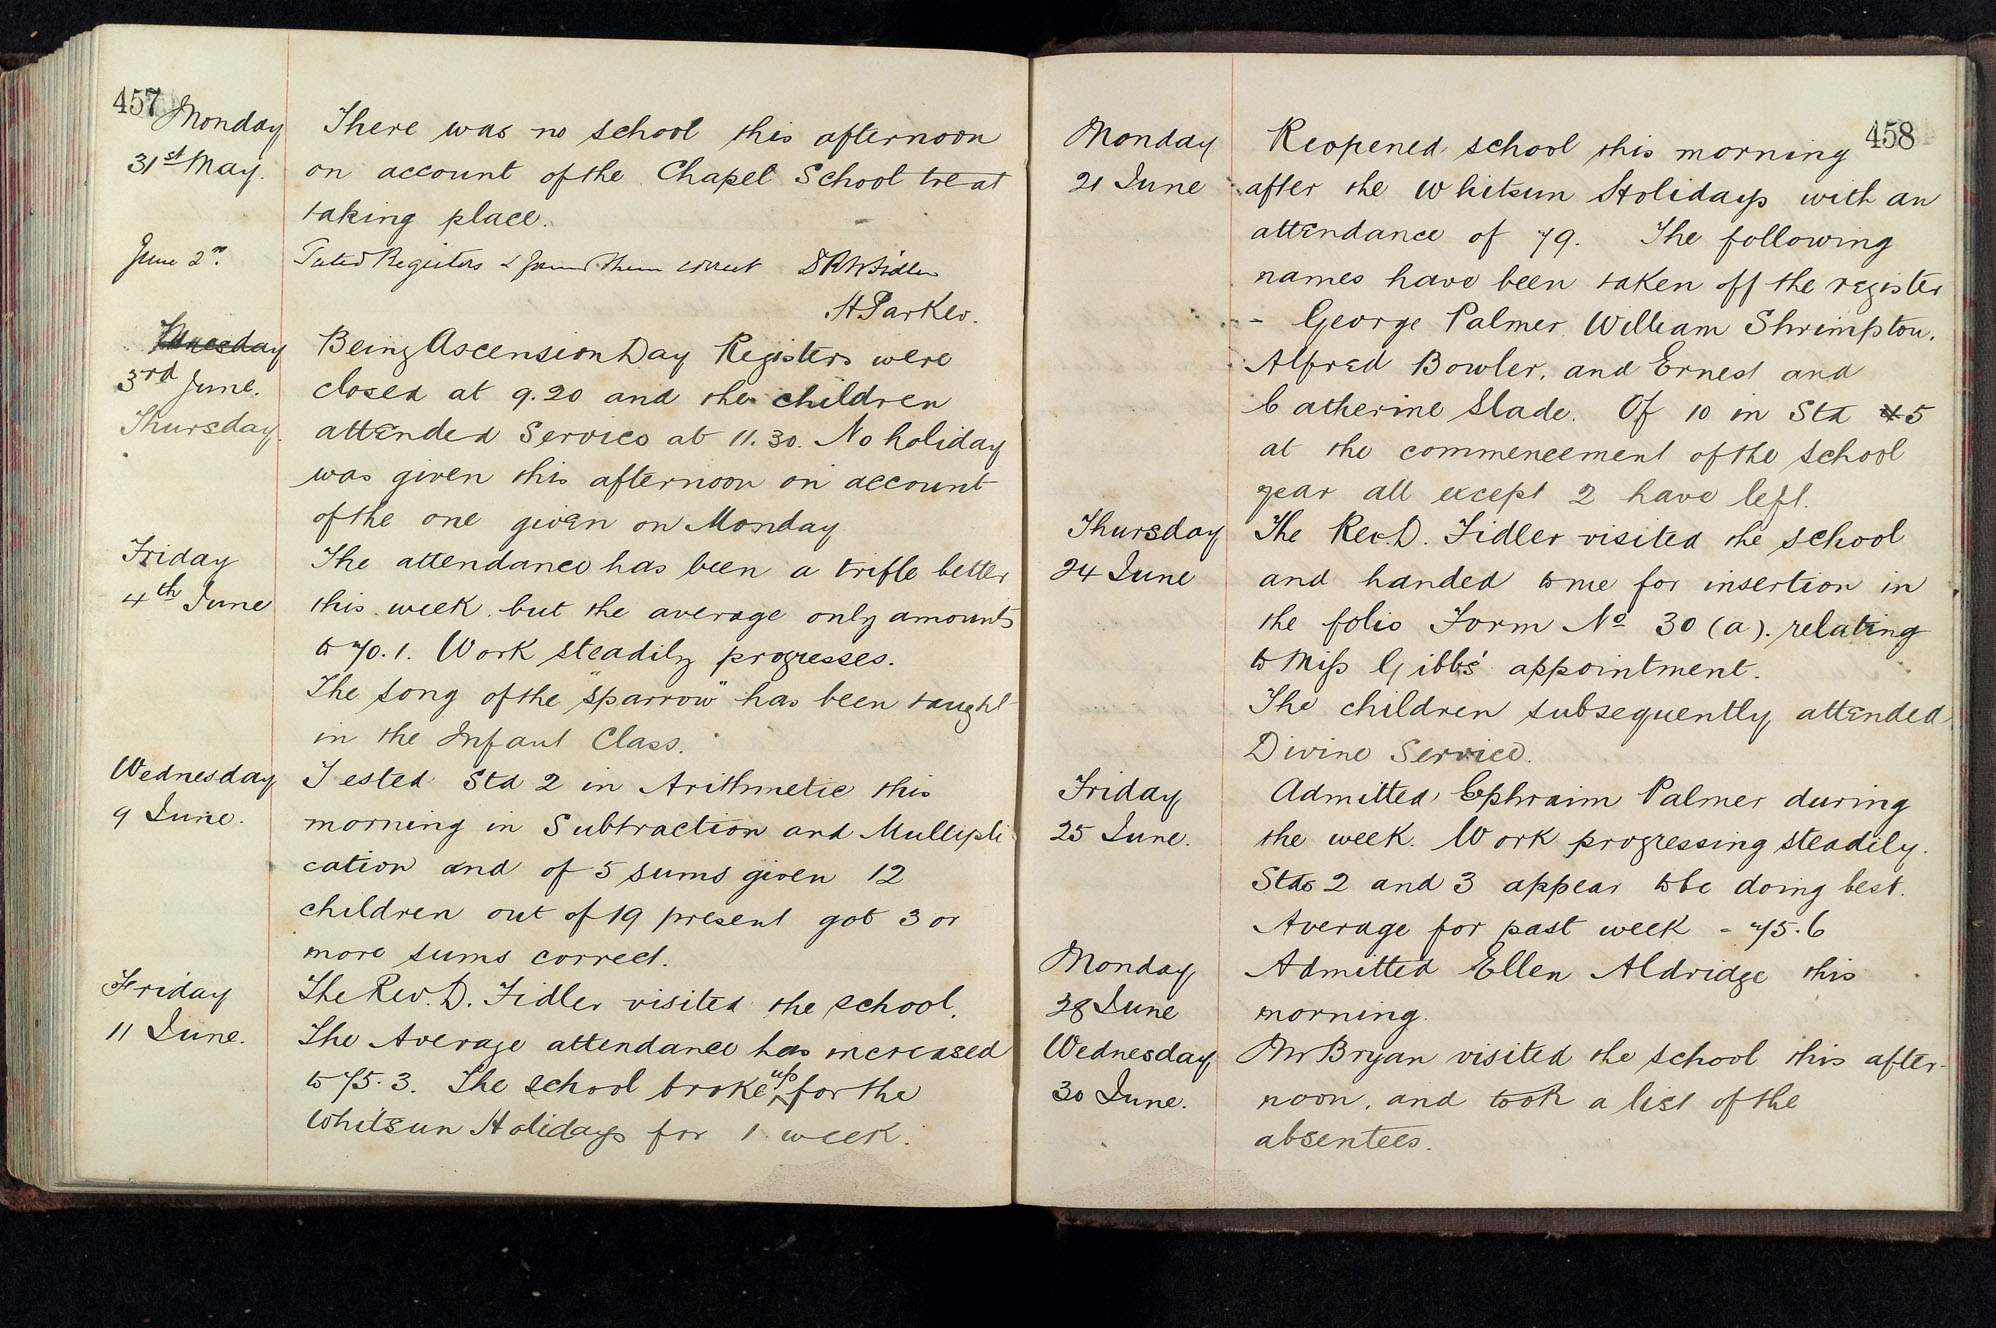 457
Monday
31st May.
There was no school this afternoon
on account of the Chapel School treat
taking place.
June 2nd.
Tested Registers & found them correct D R W Fidler
H Parker.
3rd June.
Thursday.
Being Ascension Day Registers were
closed at 9.20 and the children
attended Service at 11.30. No holiday
was given this afternoon on account
of the one given on Monday
Friday
4th June
The attendance has been a trifle better
this week but the average only amounts
to 70.1. Work steadily progresses.
The song of the "sparrow" has been taught
in the Infant Class.
Wednesday
9 June.
Tested Std 2 in Arithmetic this
morning in Subtraction and Multipli
cation and of 5 sums given 12
children out of 19 present got 3 or
more sums correct.
Friday
11 June.
The Rev. D. Fidler visited the school.
The Average attendance has increased
to 75.3. The school broke up for the
Whitsun Holidays for 1 week.
458
Monday
21 June
Reopened school this morning
after the Whitsun Holidays with an
attendance of 79. The following
names have been taken off the register
- George Palmer William Shrimpton.
Alfred Bowler, and Ernest and
Catherine Slade. Of 10 in Std 4 5
at the commencement of the school
year all except 2 have left.
Thursday
24 June
The Rev. D. Fidler visited the school
and handed to me for insertion in
the folio Form No 30 (a). relating
to Miss Gibbs' appointment.
The children subsequently attended
Divine Service.
Friday
25 June.
Admitted Ephraim Palmer during
the week. Work progressing steadily.
Stds 2 and 3 appear to be doing best.
Average for past week - 75.6
Monday
28 June
Admitted Ellen Aldridge this
morning.
Wednesday
30 June.
Mr Bryan visited the school this after-
noon, and took a list of the
absentees.